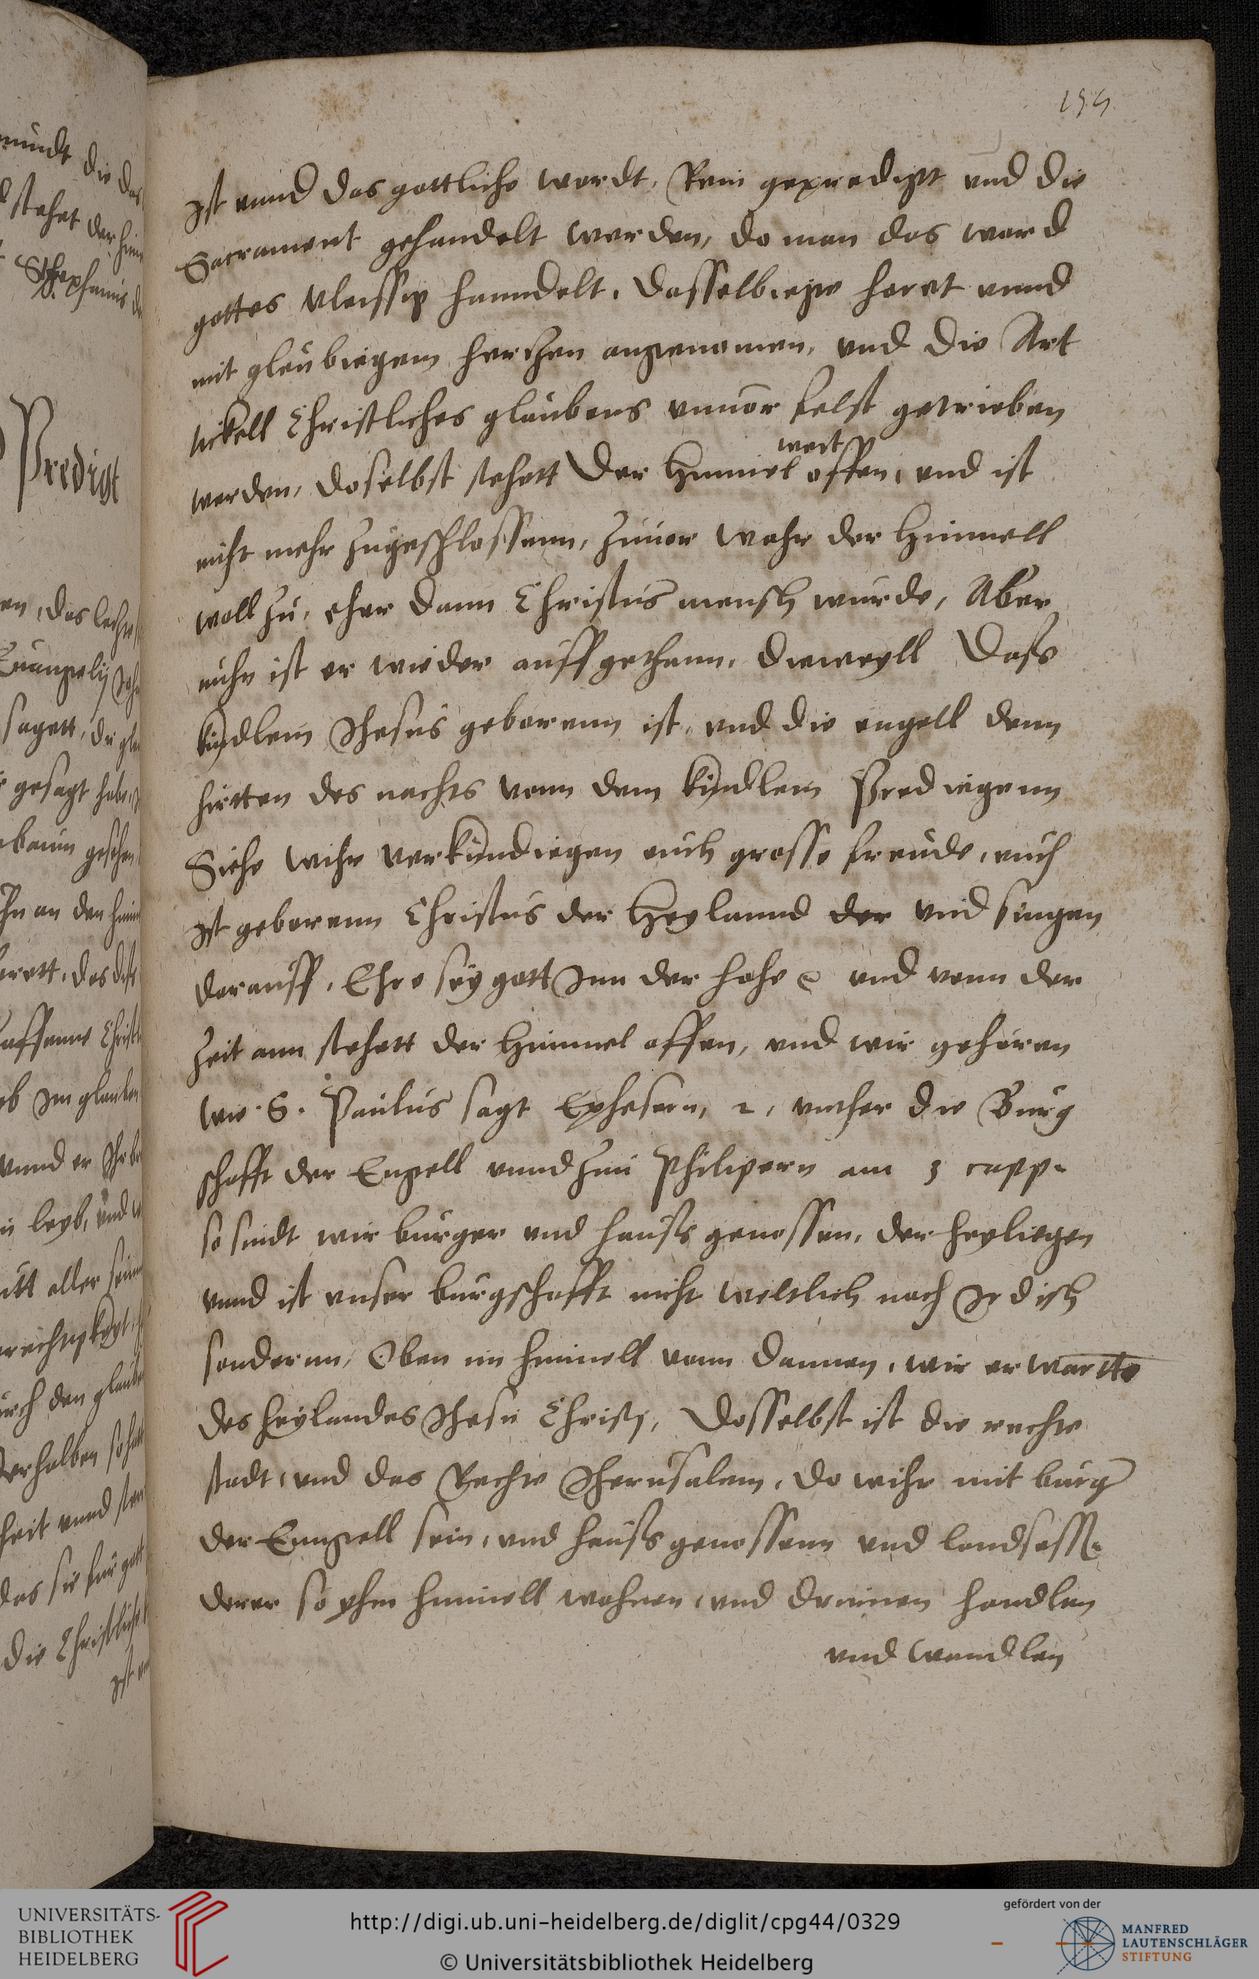 154
ist vnnd das gottliche wordt, Rein geprediget vnd die
Sacrament gehandelt werden, do man das word
gottes vleissig hanndelt, dasselbiege horet vnnd
mit gleubiegem hertzen angenomen, vnd die Art
tickell Christliches glaubens vnuor felst getrieben
werden, doselbst stehett der Himmel weit offen, vnd ist
nicht mehr zugeschlossenn, zuuor wahr der Himmell
woll zu, eher dann Christus mensch wurde, Aber
nuhn ist er wieder auff gethann, dieweyll dass
kindlein Jhesus geborenn ist, vnd die engell denn
hirtten des nachts vonn dem kindlein Prediegenn
Siehe wihr verkundiegen euch grosse freude, euch
ist geborenn Christus der Heylannd der vnd singen
darauff, Ehre sey gott Inn der hohe vnd vonn der
Zeit ann stehett der Himmel offen, vnd wir gehoren
wie S. Paulus sagt Ephesern, 2, vnther die Burg
schafft der Engell vnnd zun Philipern am 3 capp.
so sindt wir burger vnd hauss genossen, der heyliegen
vnnd ist vnser burgschafft nicht weltlich noch Irdisch
sondernn, Oben im himmell vonn dannen, wir erwartte
des heylandes Jhesu Christj, dosselbst ist die rechte
stadt, vnd das Rechte Jherusalem, do wihr mit burg
der Enngell sein, vnd hauss genossenn vnd landsass
derer so yhm himmell wohnen, vnd drinnen handlen
vnd wandlen
Predigt
UNIVERSITÄTS-
BIBLIOTHEK
HEIDELBERG
http://digi.ub.uni-heidelberg.de/diglit/cpg44/0329
© Universitätsbibliothek Heidelberg
gefördert von der
MANFRED
LAUTENSCHLÄGER
STIFTUNG